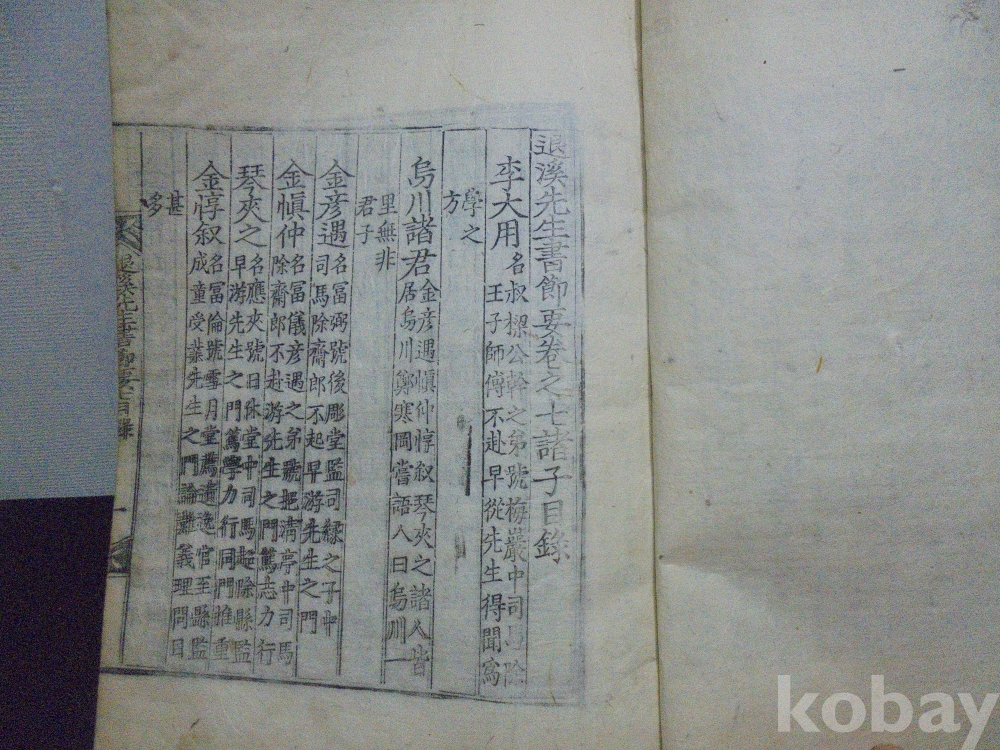 退溪先生書節要卷之七諸子目錄
李大用 名叔樑公幹之弟號梅巖中司馬除
王子師傅不赴早從先生得聞爲
學之
方
烏川諸君 金彦遇愼仲惇叙琴夾之諸人皆
居烏川鄭寒岡嘗語人曰烏川一
里無非
君子
金彦遇 名富弼號後彫堂監司緣之子中
司馬除齋郎不起早游先生之門
金愼仲 名富儀彦遇之弟號挹淸亭中司馬
除齋郎不赴游先生之門篤志力行
琴夾之 名應夾號日休堂中司馬趍除縣監
早游先生之門篤學力行同門推重
金惇叙 名富倫號雪月堂薦遺逸官至縣監
成童受業先生之門論難義理問目
甚
多
退溪先生書節要七目錄
一
kobay